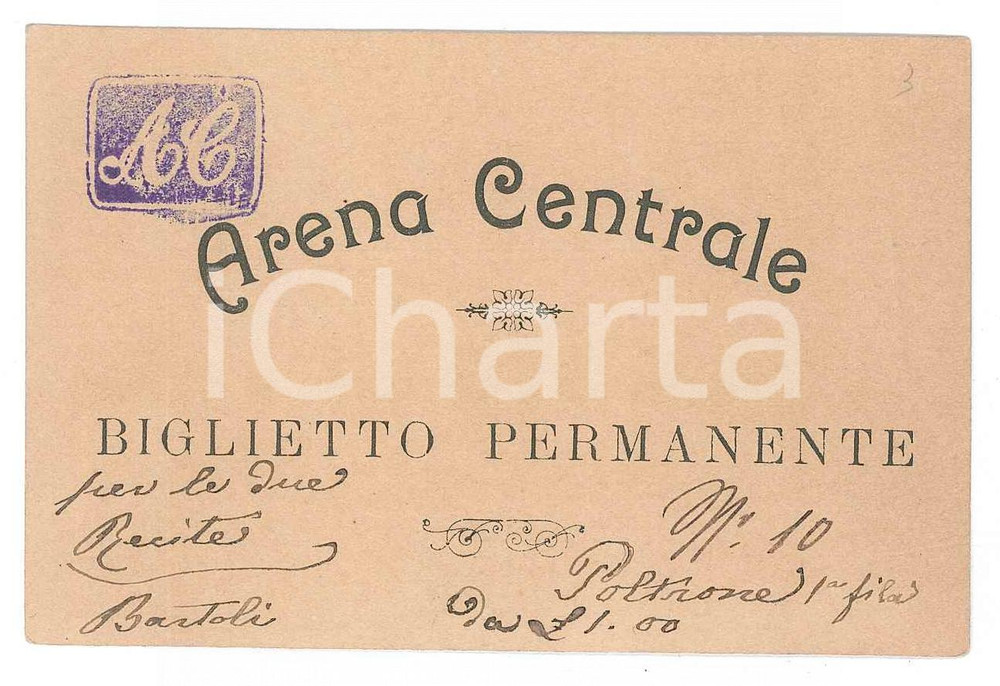 3
AC
Arena Centrale
iCharta
BIGLIETTO PERMANENTE
per le due
Recite
Bartoli
N.º 10
Poltrone 1a fila
da £1.00